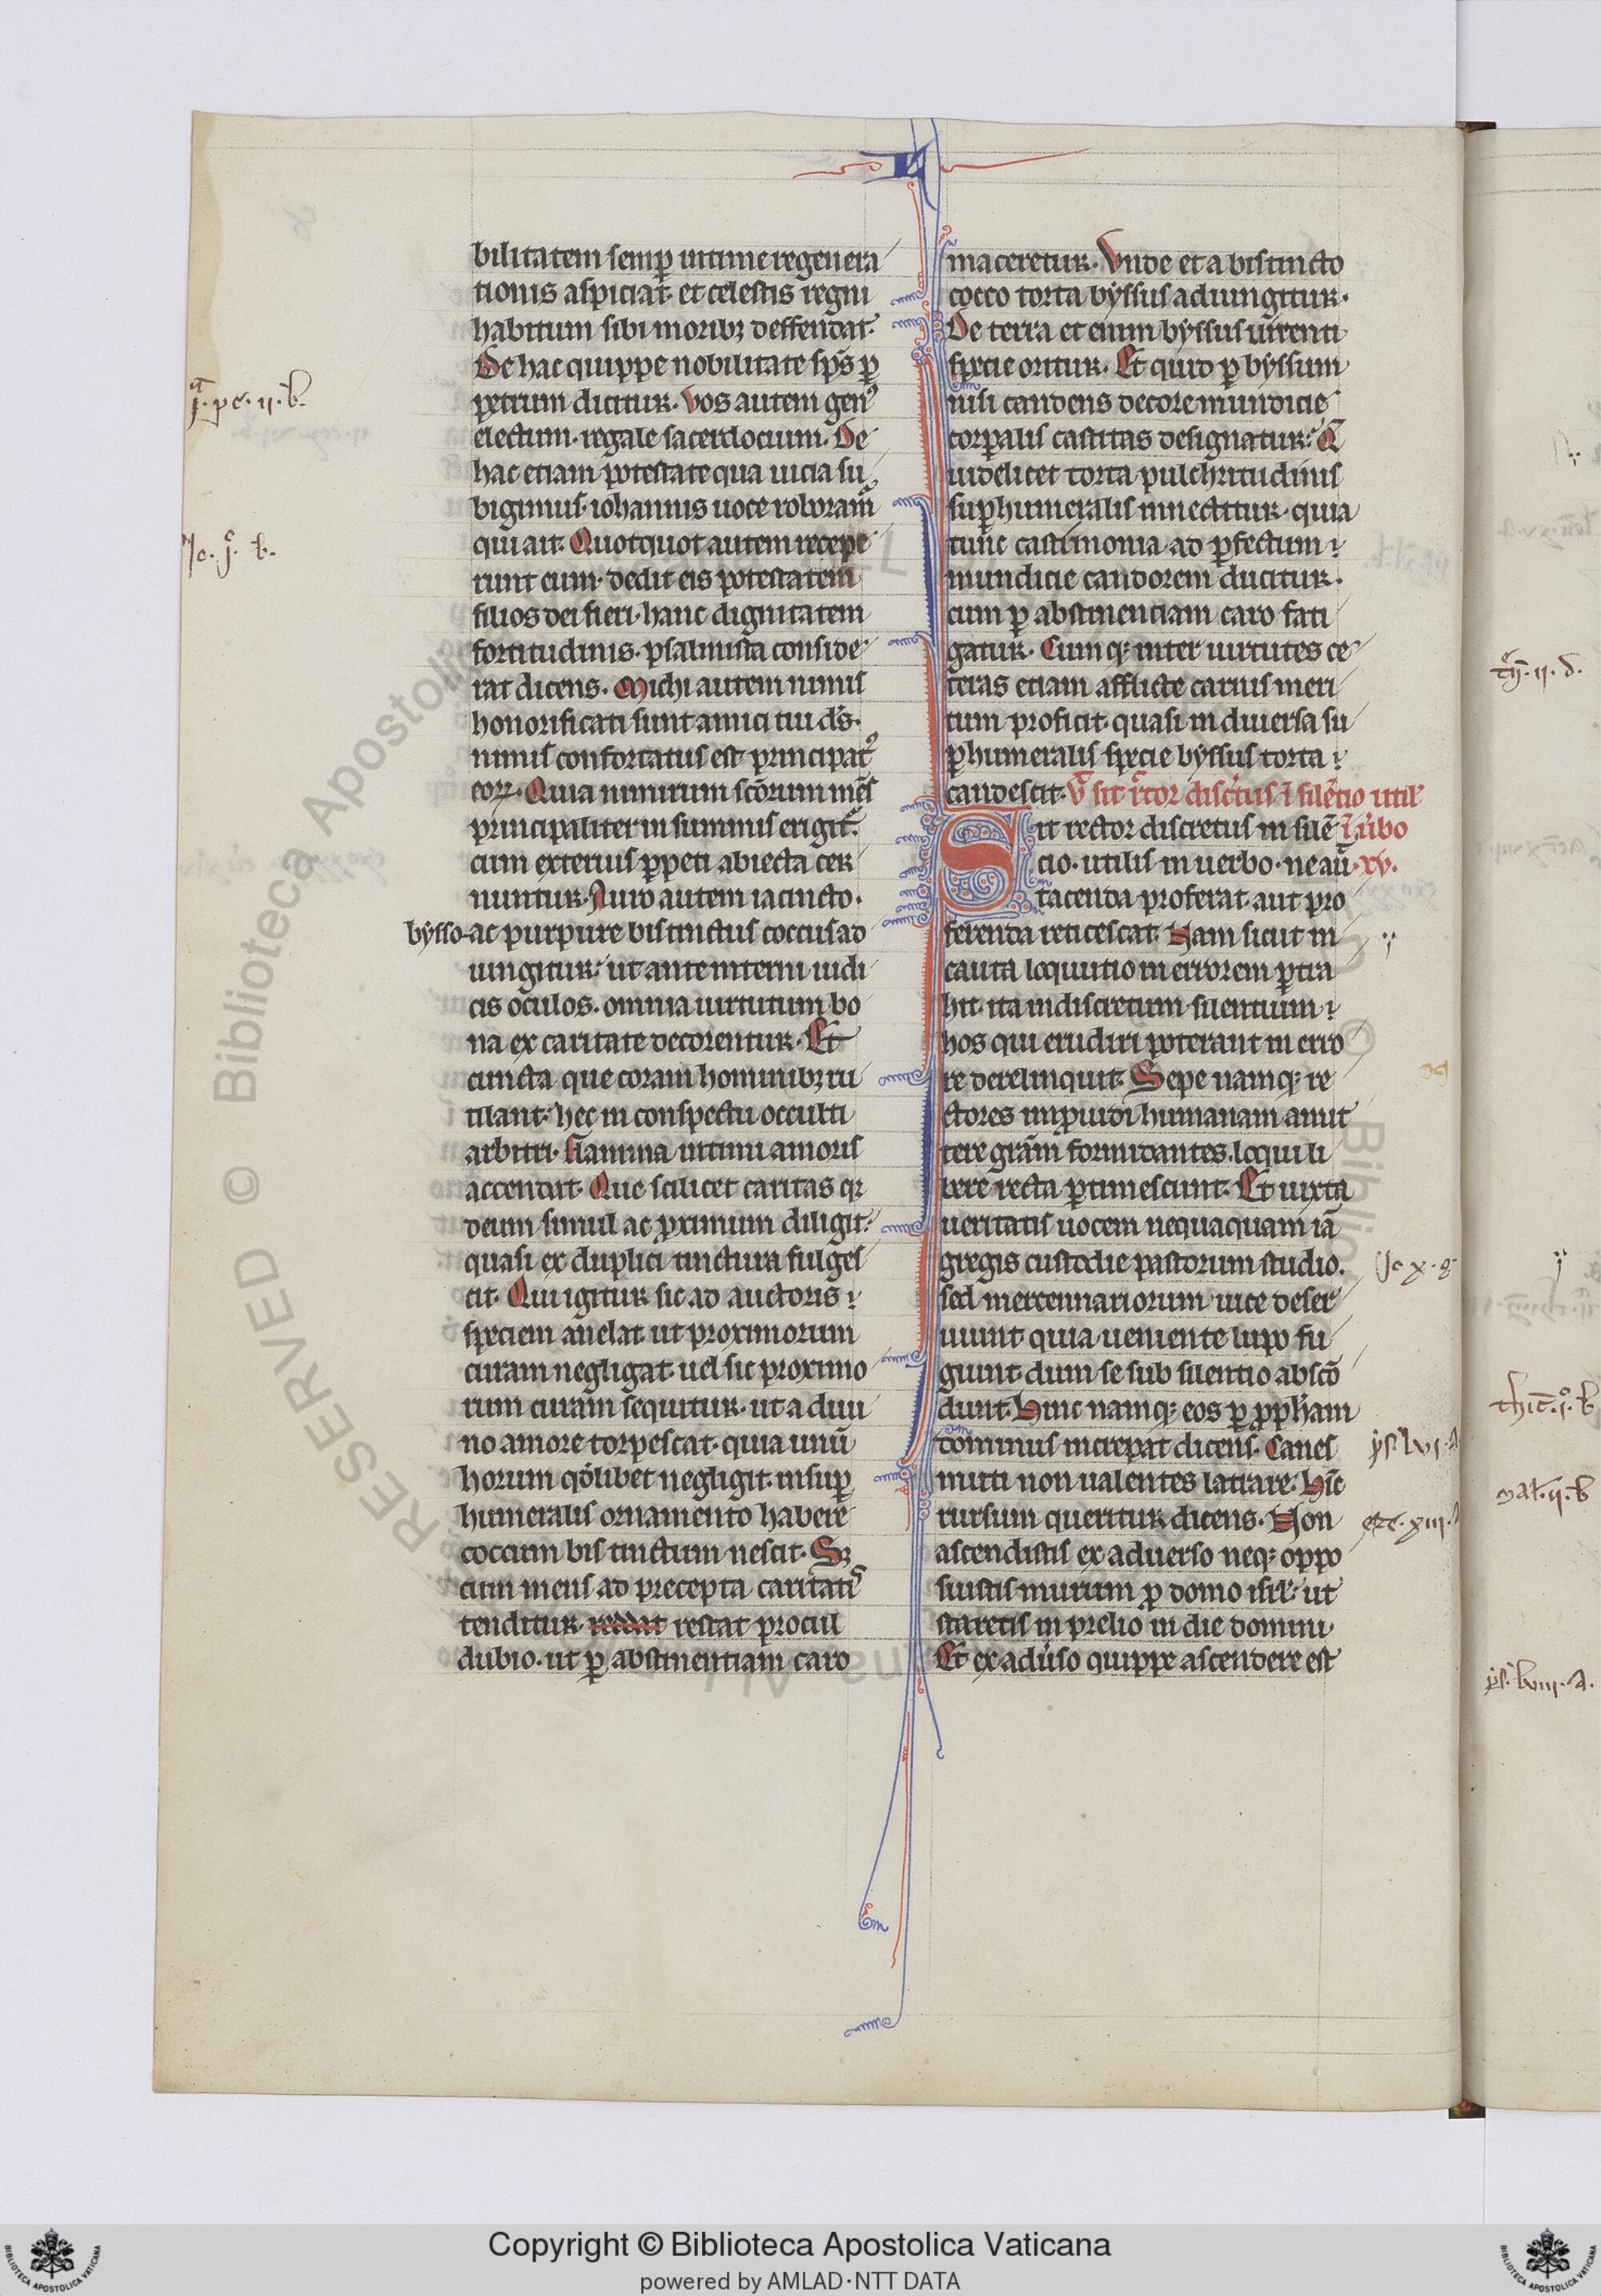 bilitatem semp̱ intime regenera
tionis aspiciat. et celestis regni
habitum sibi moribꝫ deffendat.
De hac quippe nobilitate sp̄s ꝑ
petrum dicitur. Vos autem genꝰ
electum. regale sacerdocium. De
hac etiam potestate qua uicia su
bigimus. iohannis uoce roboram̄
qui ait. Quotquot autem recepe
runt eum. dedit eis potestatem
filios dei fieri. hanc dignitatem
fortitudinis. psalmista conside
rat dicens. Michi autem nimis
honorificati sunt amici tui ds̄.
nimis confortatus est principatꝰ
eoꝝ. Quia nimirum sc̄orum mēs
principaliter in summis erigit᷑.
cum exterius ꝑpeti abiecta cer
nuntur. Auro autem iacincto.
bysso ac purpure bis tinctus coccus ad
iungitur. ut ante interni iudi
cis oculos. omnia uirtutum bo
na ex caritate decorentur. Et
cuncta que coram hominibꝫ ru
tilant. hec in conspectu occulti
arbitri. flamma intimi amoris
accendat. Que scilicet caritas qꝫ
deum simul ac ꝓximum diligit.
quasi ex duplici tinctura fulges
cit. Qui igitur sic ad auctoris
speciem anelat ut proximorum
curam negligat. uel sic proximo
rum curam sequitur. ut a diui
no amore torpescat. quia unū
horum qd̄libet negligit. in suꝑ
humeralis ornamento habere
coccum bis tinctum nescit. Sꝫ
cum mens ad precepta caritatis
tenditur. reddat restat procul
dubio. ut ꝑ abstinentiam caro
maceretur. Vnde et a bis tincto
cocco torta byssus adiungitur.
De terra et enim byssus nitenti
specie oritur. Et quid ꝑ byssum
nisi candens decore mundicie
corꝑalis castitas designatur. Q̄
uidelicet torta pulchritudinis
suꝑhumeralis innectitur. quia
tunc castimonia ad ꝑfectum
mundicie candorem ducitur.
cum ꝑ abstinenciam caro fati
gatur. Cumqꝫ inter uirtutes ce
teras etiam afflicte carnis meri
tum proficit. quasi in diuersa su
ꝑhumeralis specie byssus torta
candescit. Vt sit rc̄tor discretus ī silētio util'
Sit rector discretus in silē ī ūbo
cio. utilis in uerbo. ne aū .xv.
tacenda proferat. aut pro
ferenda reticescat. Nam sicut in
cauta locuutio in errorem ꝑtra
hit. ita indiscretum silentium
hos qui erudiri poterant in erro
re derelinquit. Sepe namqꝫ re
ctores imꝓuidi humanam amit
tere grām formidantes. loqui li
bere recta ꝑtimescunt. Et iuxta
ueritatis uocem nequaquam iā
gregis custodie pastorum studio.
sed mercennariorum uice deser
uiunt quia ueniente lupo fu
giunt. dum se sub silentio abscō
dunt. Hinc namqꝫ eos ꝑ ꝓpħam
dominus increpat dicens. Canes
muti non ualentes latrare. Hīc
rursum queritur dicens. Non
ascendistis ex aduerso neqꝫ oppo
suistis murum ꝓ domo isrl'. ut
staretis in prelio in die domini.
Et ex adūso quippe ascendere est
j. pe. ii. b.
Jo. j. b.
Jo x. g
ys. lvi.
eze. xiii.
ys. lviii. a.
Copyright © Biblioteca Apostolica Vaticana
powered by AMLAD·NTT DATA
RESERVED © Biblioteca Apostolica
BIBLIOTECA APOSTOLICA VATICANA
BIBLIOTECA APOSTOLICA VATICANA